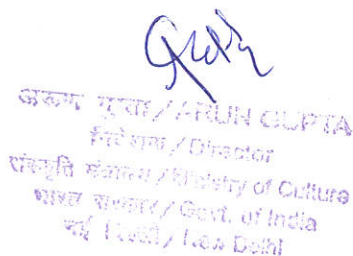 अरूण गुप्ता / ARUN GUPTA
निदेशक / Director
संस्कृति मंत्रालय / Ministry of Culture
भारत सरकार / Govt. of India
नई दिल्ली / New Delhi